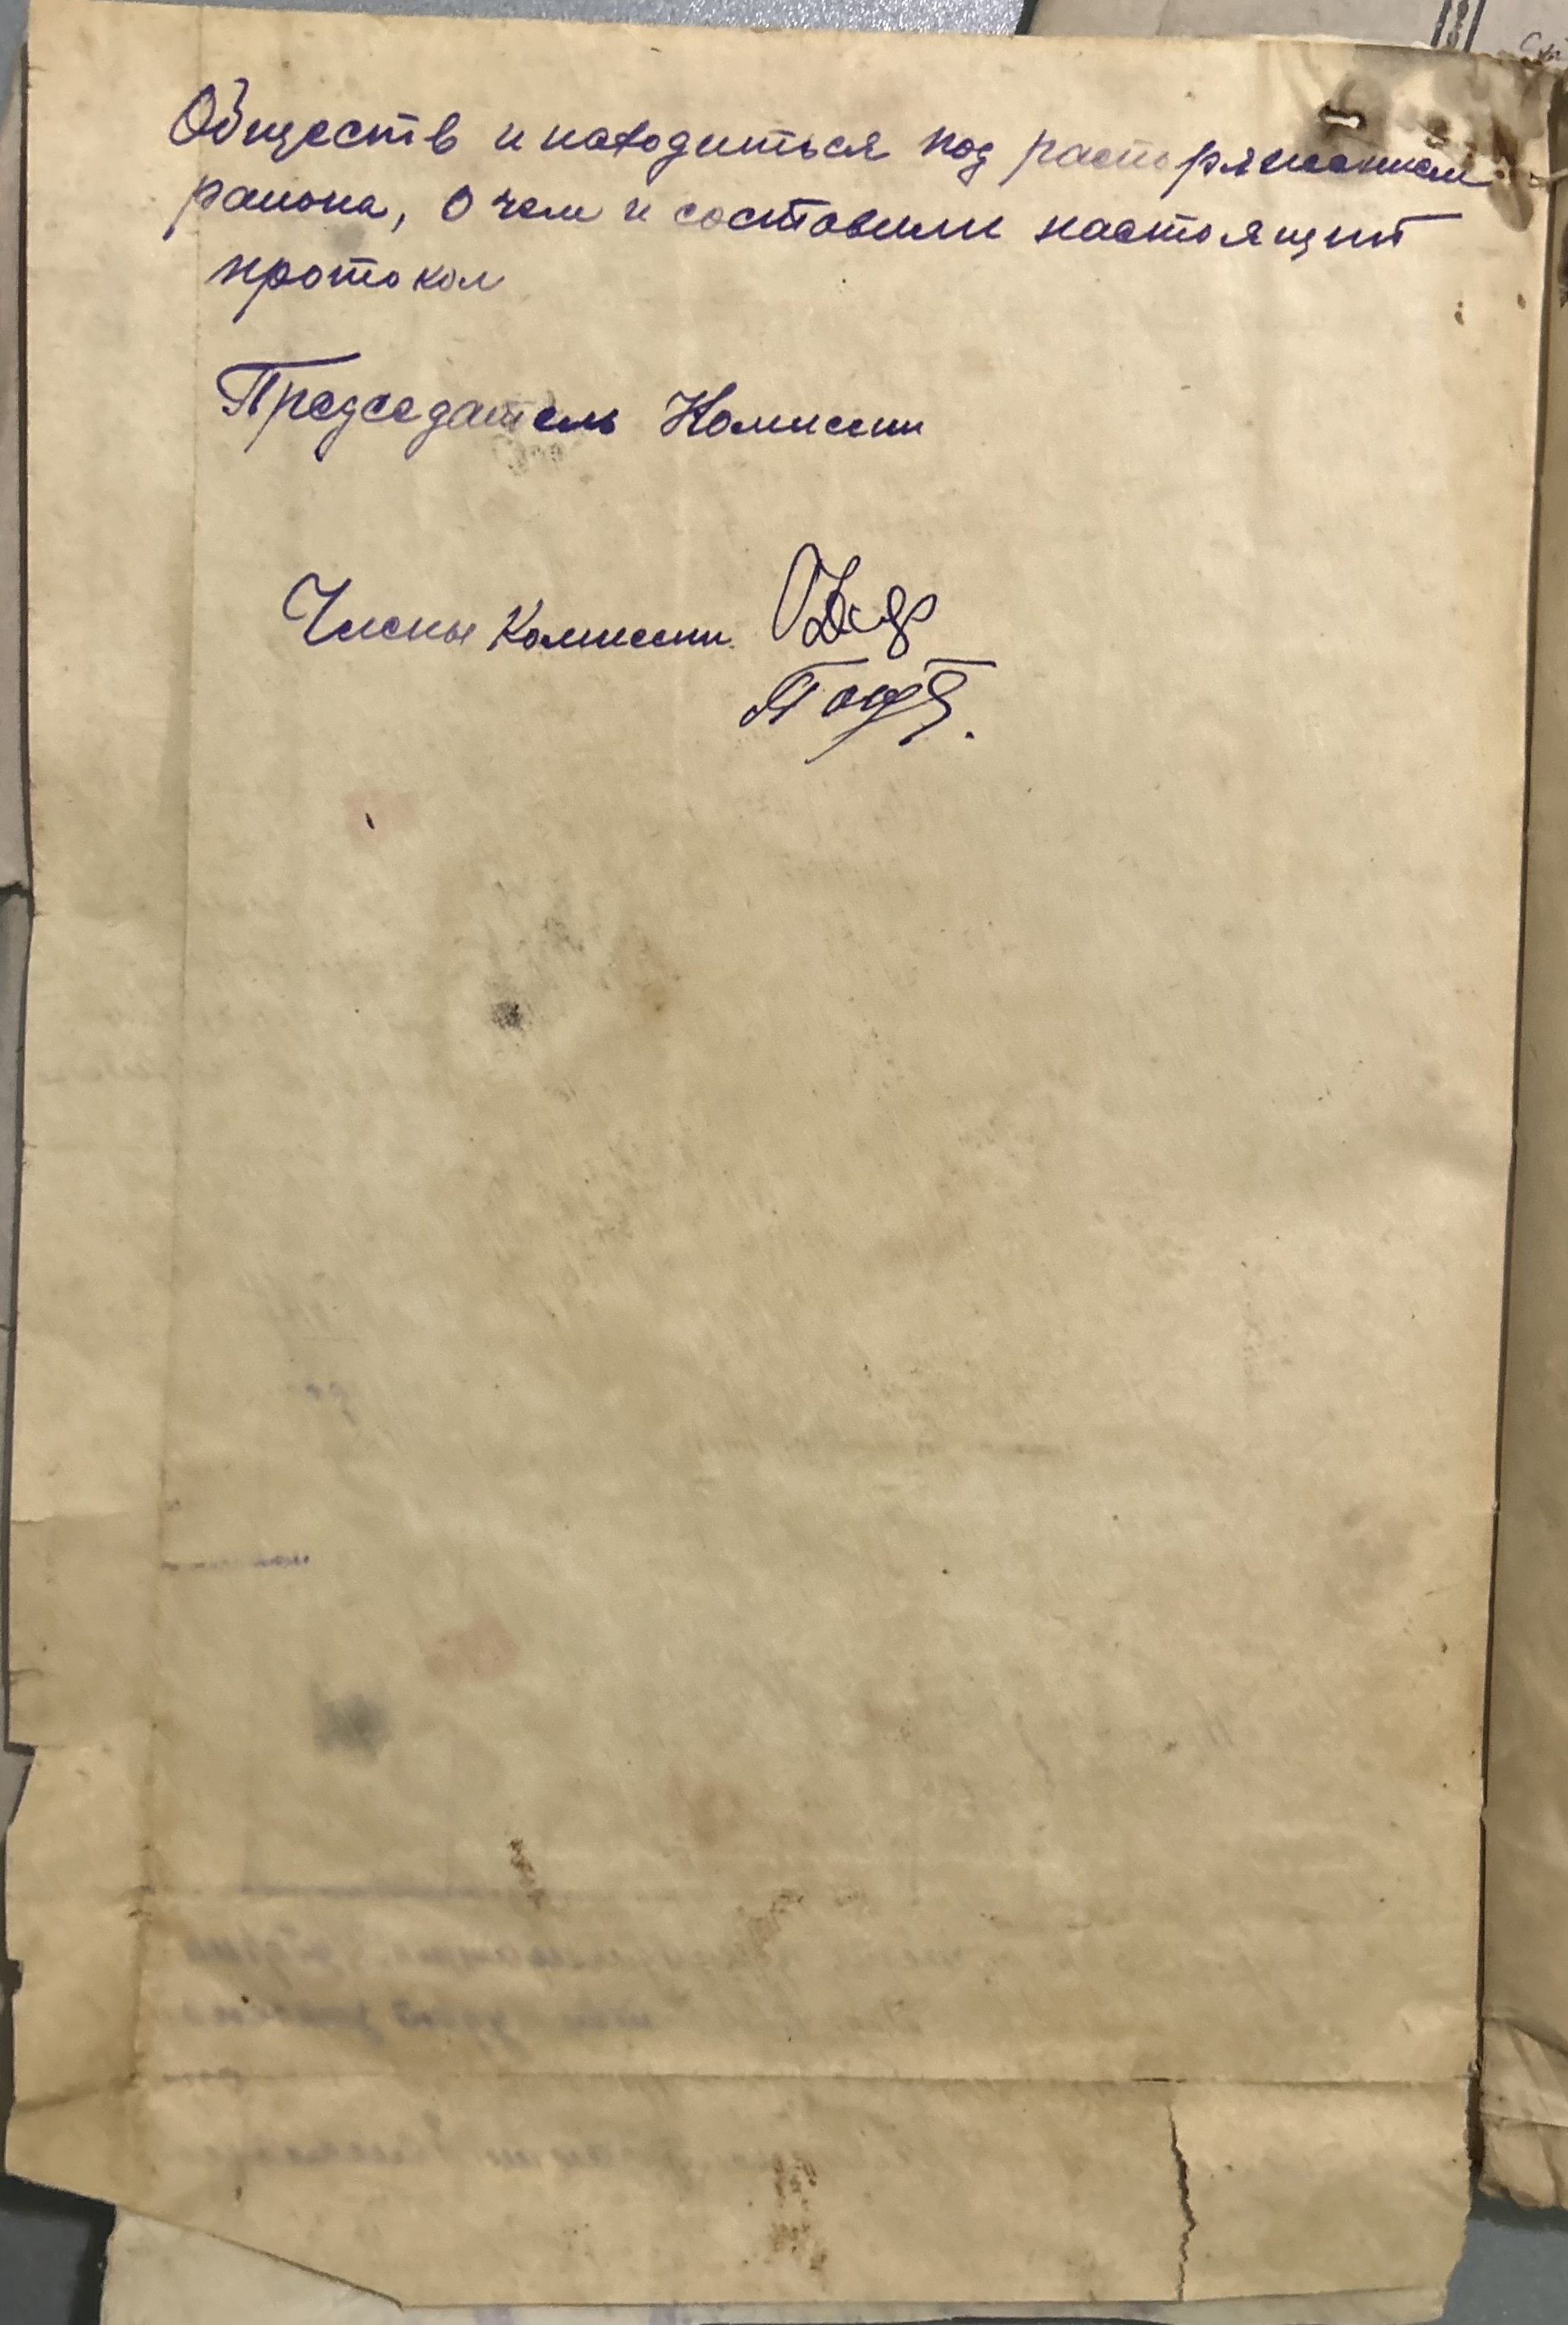 Обществ и находиться под распоряжением
района, о чем и составили настоящий
протокол
Председатель Комиссии
Члены Комиссии